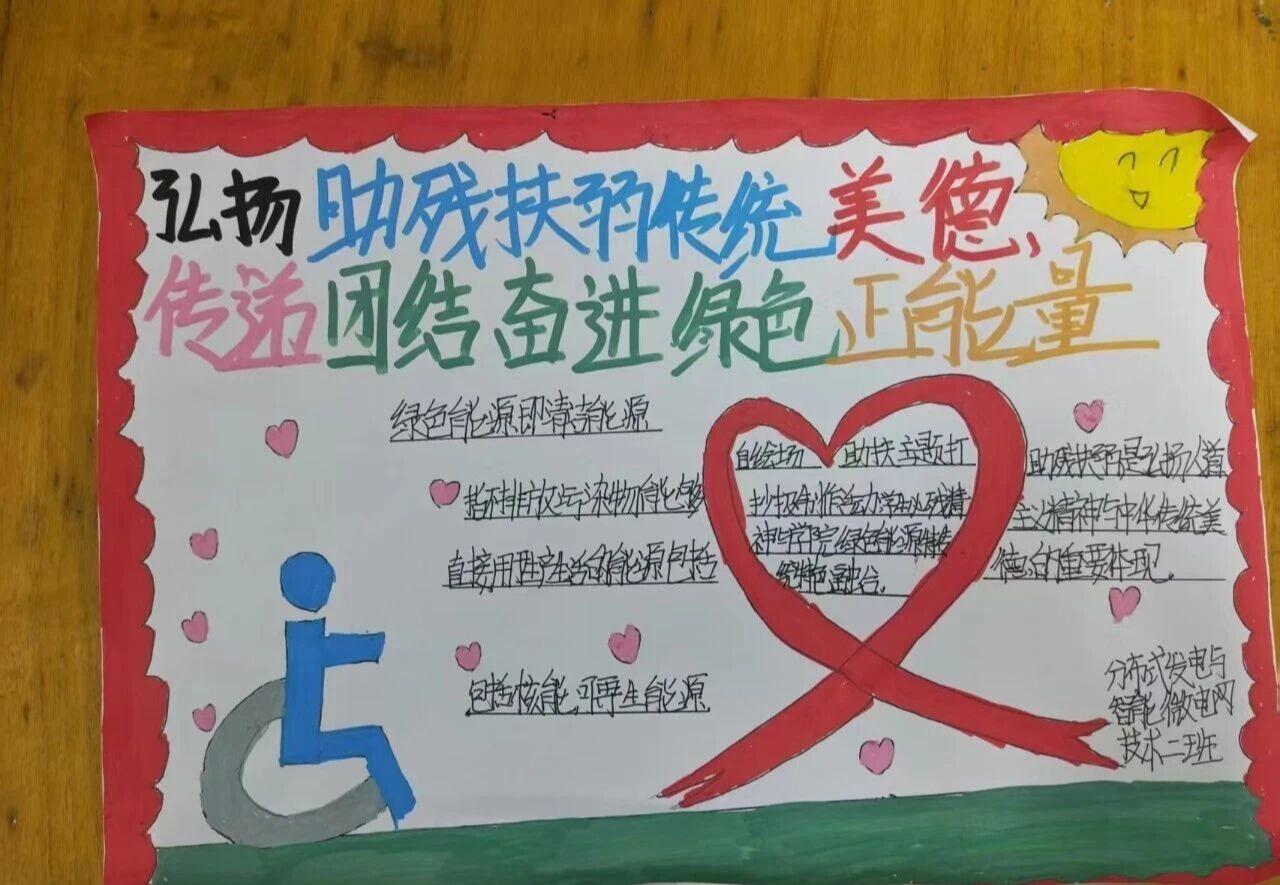 弘扬助残扶弱传统美德、
传递团结奋进绿色正能量
绿色能源即清洁能源
指不排放污染物能够
直接用于生产生活的能源包括
包括核能,可再生能源
自绘场 助扶主题打
抄报制作活动学生必残精
神与学院绿色能源
特色融合。
助残扶弱是弘扬人道
主义精神与中华传统美
德的重要体现。
分布式发电与
智能微电网
技术二班